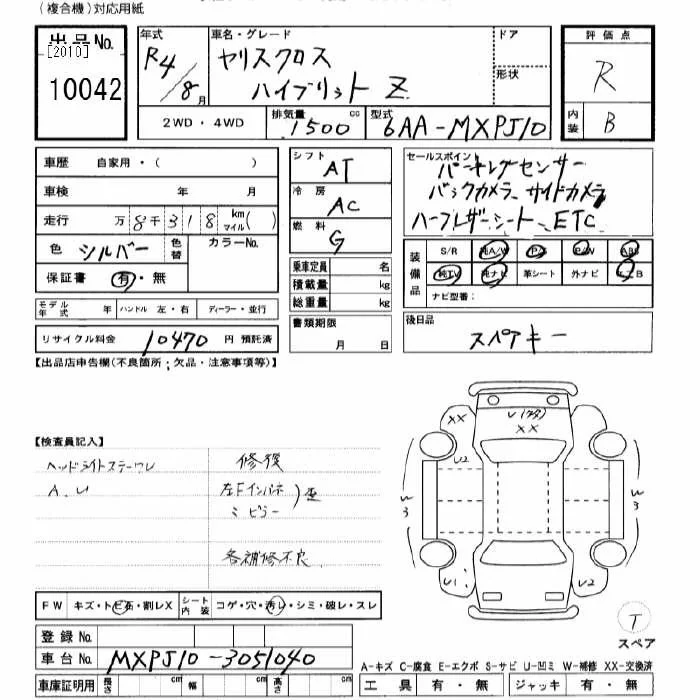 (複合機)対応用紙
出品No.
[2010]
10042
年式
R4/8月
車名・グレード
ヤリスクロス
ハイブリット Z
ドア
形状
評価点
R
内装
B
2WD・4WD
排気量
1500 cc
型式
6AA-MXPJ10
車歴 自家用・( )
車検 年 月
走行 万 8千318 km マイル( )
色 シルバー 色替 カラーNo.
保証書 有・無
モデル年式 年 ハンドル 左・右 ディーラー・並行
リサイクル料金 10470 円 預託済
シフト AT
冷房 AC
燃料 G
乗車定員 名
積載量 kg
総重量 kg
書類期限
月 日
セールスポイント
パーキングセンサー
バックカメラ サイドカメラ
ハーフレザーシート、ETC
装備品
S/R 純A/W P/S P/W ABS
純TV 純ナビ 革シート 外ナビ エアB
ナビ型番:
後日品
スペアキー
【出品店申告欄(不良箇所;欠品・注意事項等)】
【検査員記入】
A.U
修復
各補修不良
XX
XX
U2
W3
W3
U1
U2
T
スペア
FW キズ・トビ石・割レX シート内装 コゲ・穴・汚レ・シミ・破レ・スレ
登録No.
車台No. MXPJ10-3051040
車庫証明用 長さ cm 幅 cm 高さ cm
A-キズ C-腐食 E-エクボ S-サビ U-凹ミ W-補修 XX-交換済
工具 有・無 ジャッキ 有・無